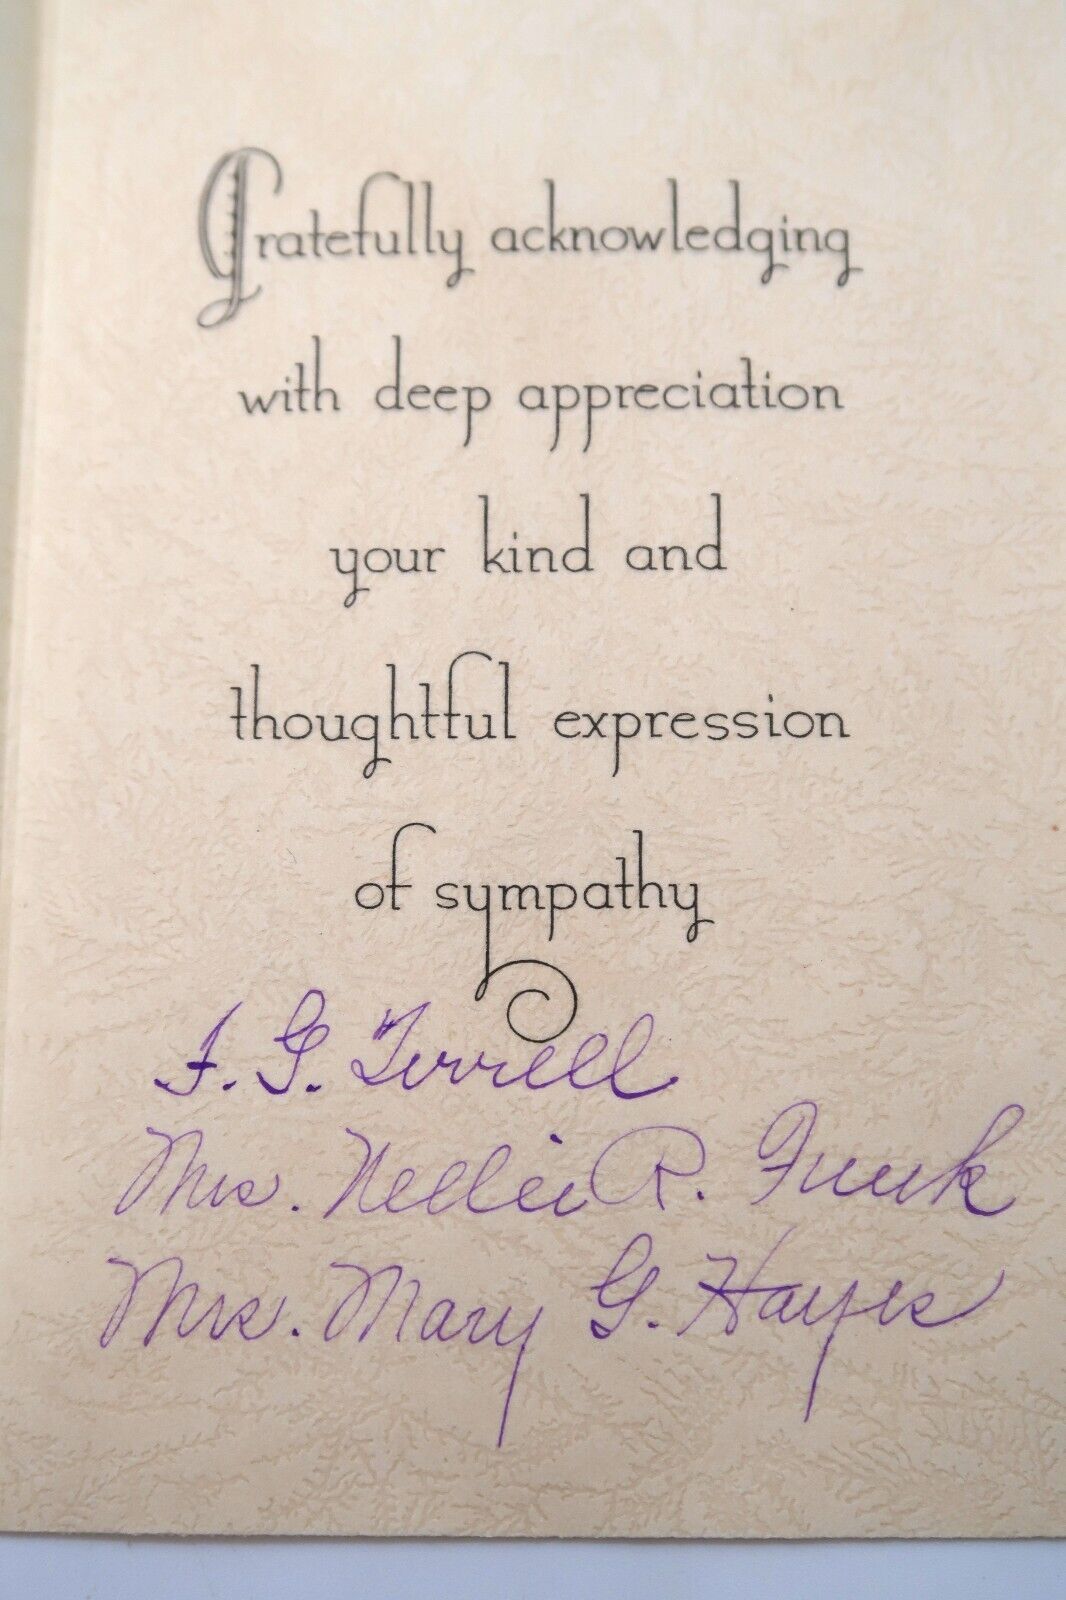 Gratefully acknowledging
with deep appreciation
your kind and
thoughtful expression
of sympathy
F. G. Terrell
Mrs. Nellie R. Funk
Mrs. Mary G. Hayes